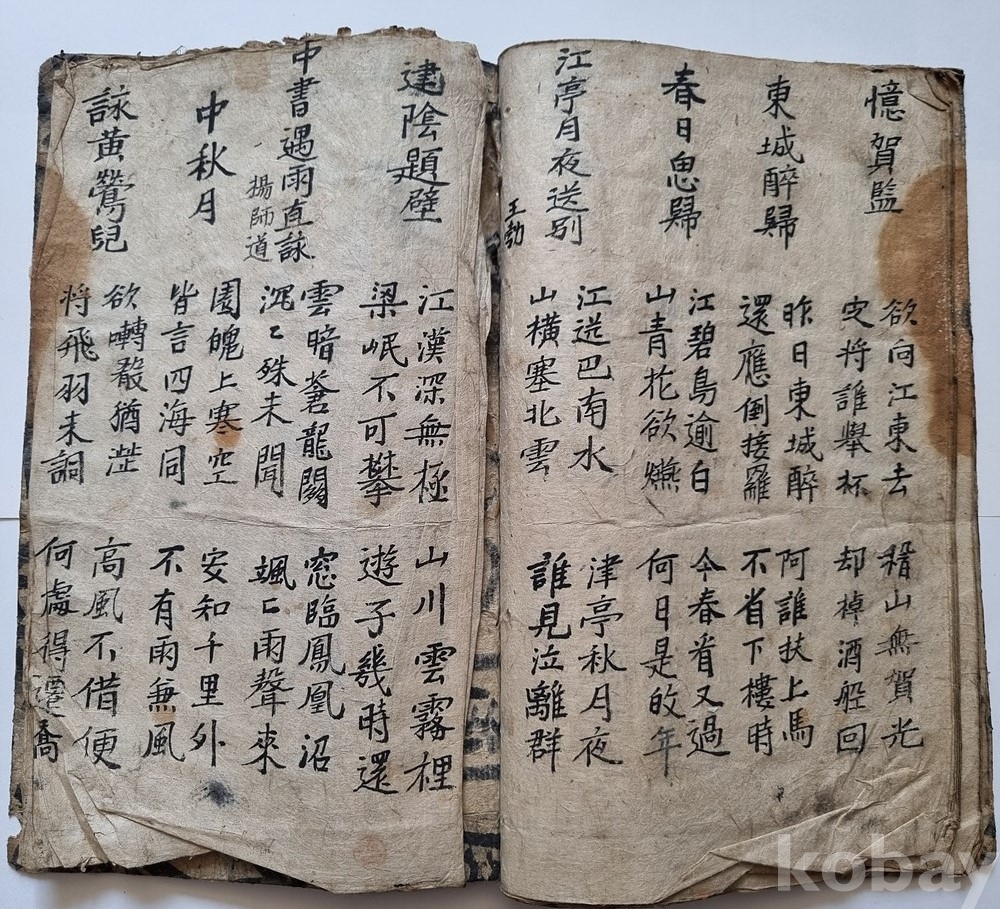 憶賀監
欲向江東去
定將誰舉杯
稽山無賀光
却棹酒船回
東城醉歸
昨日東城醉
還應倒接䍦
阿誰扶上馬
不省下樓時
春日思歸
江碧鳥逾白
山青花欲燃
今春看又過
何日是的年
江亭月夜送別
王勃
江送巴南水
山橫塞北雲
津亭秋月夜
誰見泣離群
建陰題壁
江漢深無極
梁岷不可攀
山川雲霧裡
遊子幾時還
中書遇雨直詠
揚師道
雲暗蒼龍闕
沉〻殊未聞
窓臨鳳凰沼
颯〻雨聲來
中秋月
圓魄上寒空
皆言四海同
安知千里外
不有雨無風
詠黃鶯兒
欲囀聲猶澁
將飛羽未調
高風不借便
何處得遷喬
kobay